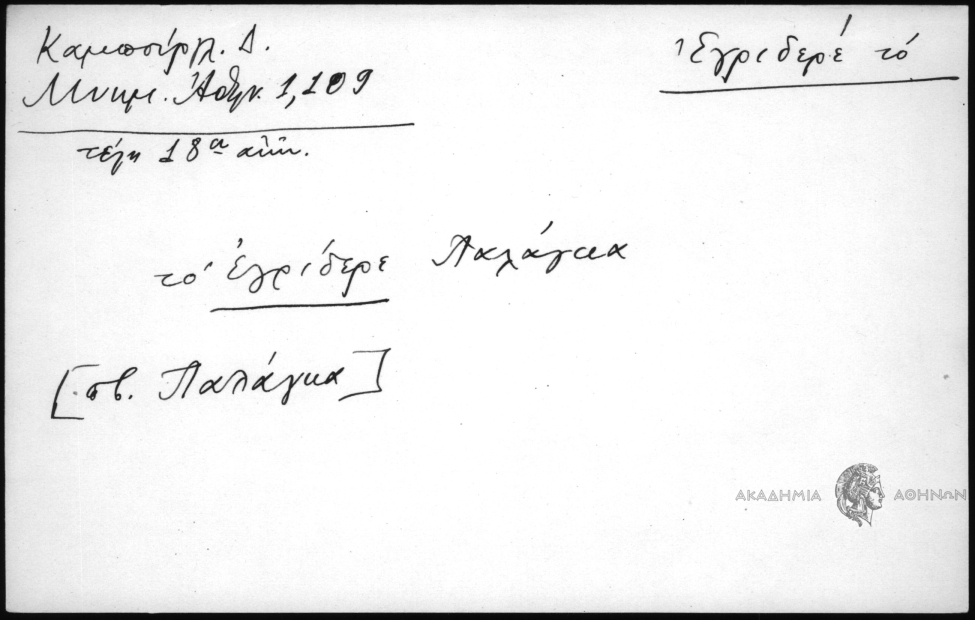 Καμπούρογλ. Δ.
Μνημ. Ἀθην. 1,109
τέλη 18ου αἰῶν.
Ἐγριδερέ τό
τό Ἐγρίδερε Παλάγκα
[πβ. Παλάγκα]
ΑΚΑΔΗΜΙΑ ΑΘΗΝΩΝ